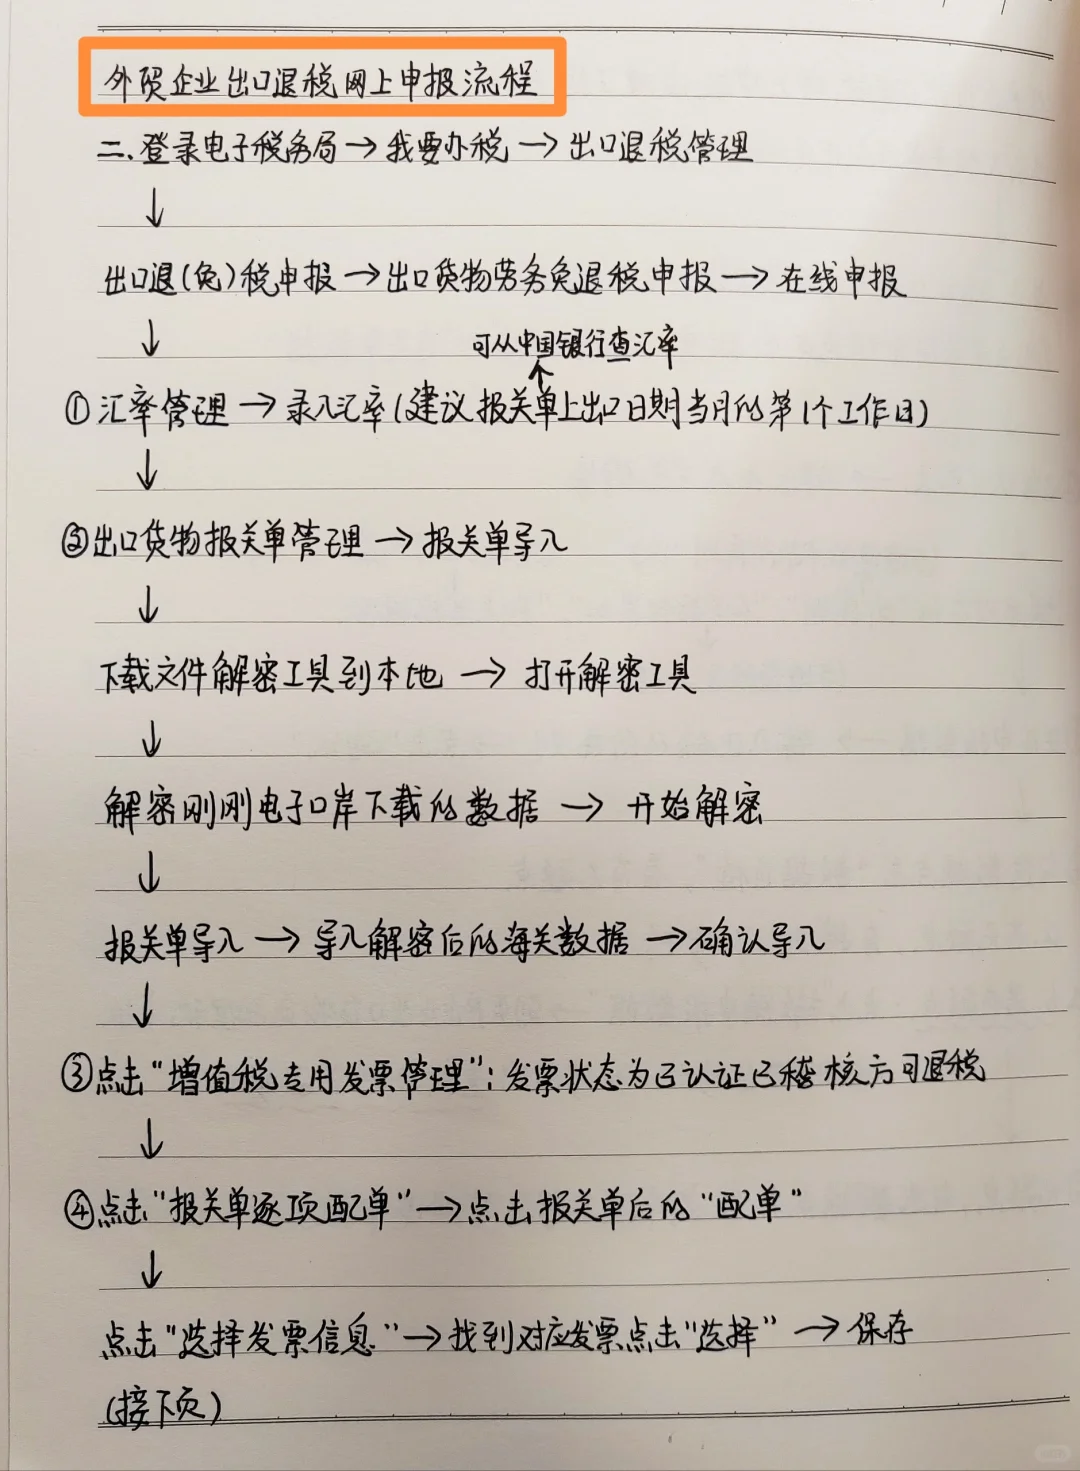 外贸企业出口退税网上申报流程
二、登录电子税务局→我要办税→出口退税管理
↓
出口退(免)税申报→出口货物劳务免退税申报→在线申报
↓
可从中国银行查汇率
↑
①汇率管理→录入汇率(建议报关单上出口日期当月的第1个工作日)
↓
②出口货物报关单管理→报关单导入
↓
下载文件解密工具到本地→打开解密工具
↓
解密刚刚电子口岸下载的数据→开始解密
↓
报关单导入→导入解密后的海关数据→确认导入
↓
③点击“增值税专用发票管理”:发票状态为已认证已稽核方可退税
↓
④点击“报关单逐项配单”→点击报关单后的“配单”
↓
点击“选择发票信息”→找到对应发票点击“选择”→保存
(接下页)